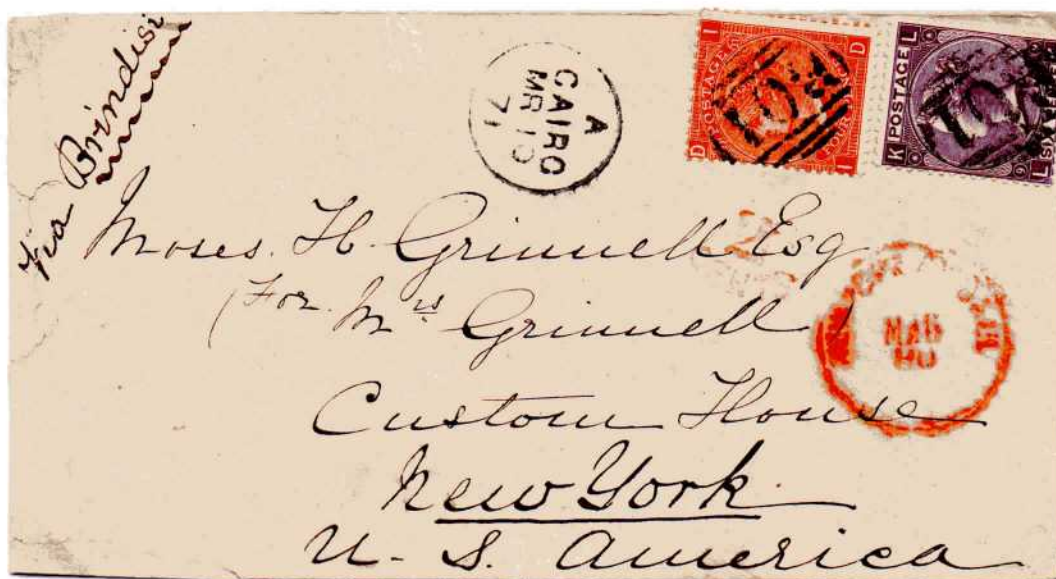 Via Brindisi
A
CAIRO
MR 10
71
D I
POSTAGE
FOUR
D I
L
K POSTAGE L
SIX
L
Moses. H. Grinnell Esq
(For Mrs Grinnell)
Custom House
New York
U. S. America